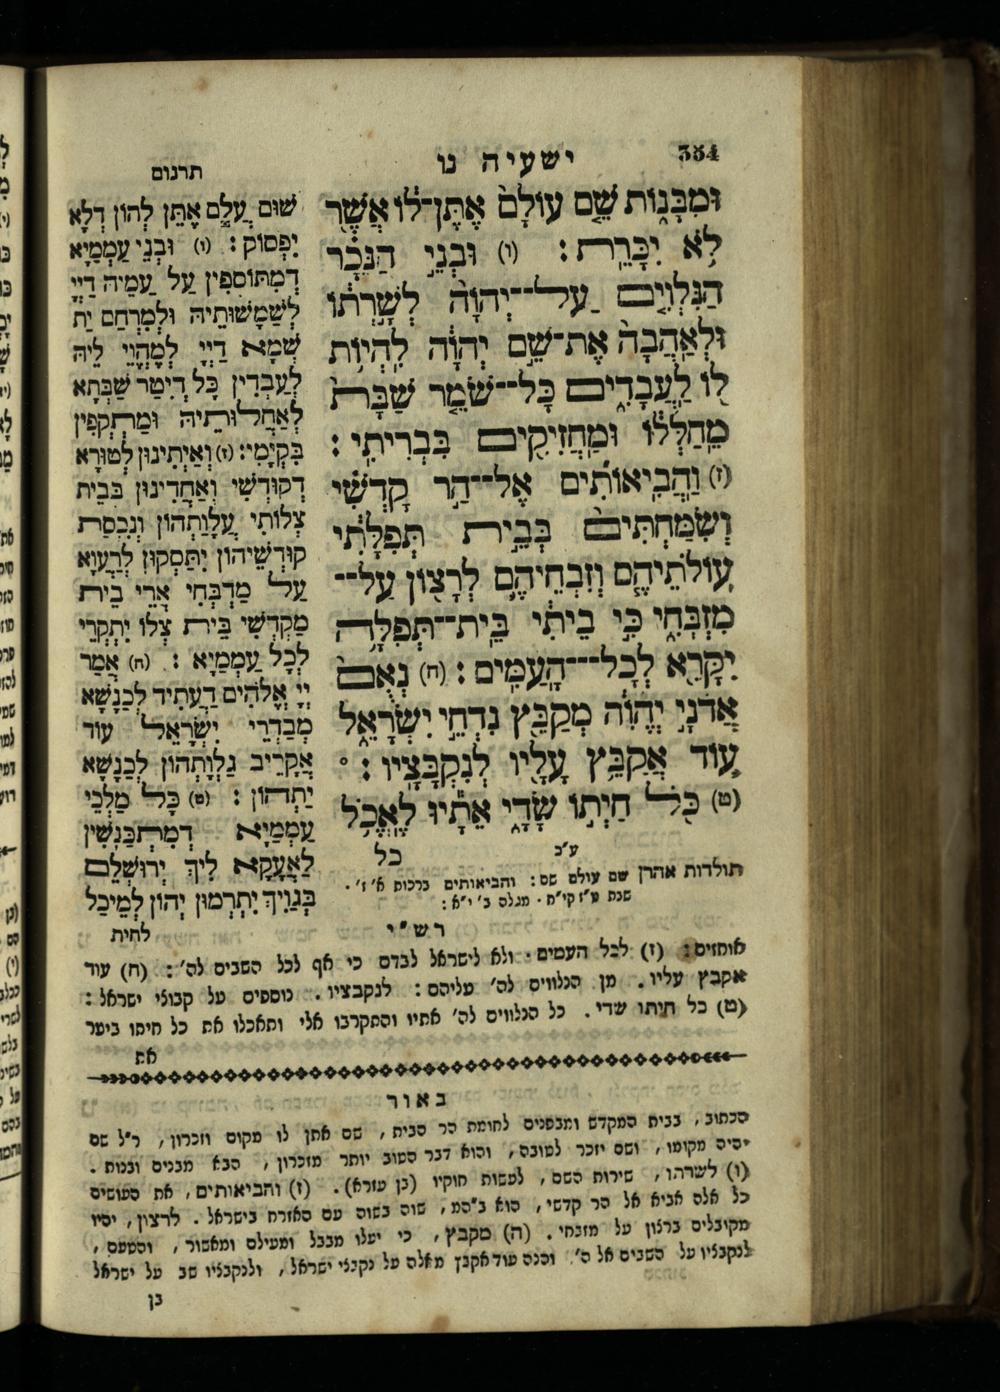 354
ישעיה נו
תרגום
וּמִבָּנוֹת שֵׁם עוֹלָם אֶתֶּן־לוֹ אֲשֶׁר
לֹא יִכָּרֵת: (ו) וּבְנֵי הַנֵּכָר
הַנִּלְוִים עַל־־יְהוָה לְשָׁרְתוֹ
וּלְאַהֲבָה אֶת־שֵׁם יְהוָה לִהְיוֹת
לוֹ לַעֲבָדִים כָּל־־שֹׁמֵר שַׁבָּת
מֵחַלְּלוֹ וּמַחֲזִיקִים בִּבְרִיתִי:
(ז) וַהֲבִיאוֹתִים אֶל־־הַר קָדְשִׁי
וְשִׂמַּחְתִּים בְּבֵית תְּפִלָּתִי
עוֹלֹתֵיהֶם וְזִבְחֵיהֶם לְרָצוֹן עַל־־
מִזְבְּחִי כִּי בֵיתִי בֵּית־־תְּפִלָּה
יִקָּרֵא לְכָל־־־הָעַמִּים: (ח) נְאֻם
אֲדֹנָי יֱהֹוִה מְקַבֵּץ נִדְחֵי יִשְׂרָאֵל
עוֹד אֲקַבֵּץ עָלָיו לְנִקְבָּצָיו: °
(ט) כֹּל חַיְתוֹ שָׂדָי אֵתָיוּ לֶאֱכֹל
ע״כ
כל
שׁוּם עָלַם אֶתֵּן לְהוֹן דְלָא
יִפְסוֹק: (ו) וּבְנֵי עַמְמַיָא
דְמִתּוֹסְפִין עַל עַמֵיהּ דַיְיָ
לְשַׁמָשׁוּתֵיהּ וּלְמִרְחַם יַת
שְׁמָא דַיְיָ לְמֶהֱוֵי לֵיהּ
לְעַבְדִין כָּל דְיִטַר שַׁבְּתָא
לְאַחֲלוּתֵיהּ וּמַתְקְפִין
בִּקְיָמִי: (ז) וְאַיְתִינוּן לְטוּרָא
דְקוּדְשִׁי וְאַחֲדִינוּן בְּבֵית
צְלוֹתִי עֲלָוַתְהוֹן וְנִכְסַת
קוּדְשֵׁיהוֹן יִתַּסְקוּן לְרַעֲוָא
עַל מַדְבְּחִי אֲרֵי בֵית
מַקְדְשִׁי בֵּית צְלוֹ יִתְקְרֵי
לְכָל עַמְמַיָא: (ח) אֲמַר
יְיָ אֱלֹהִים דַעֲתִיד לְכַנְשָׁא
מְבַדְרֵי יִשְׂרָאֵל עוֹד
אֲקָרֵיב גַלְוָתְהוֹן לְכַנְשָׁא
יַתְהוֹן: (ט) כָּל מַלְכֵי
עַמְמַיָא דְמִתְכַּנְשִׁין
לַאֲעָקָא לִיךְ יְרוּשְׁלֵם
בְּגַוִיךְ יִתְרְמוּן יְהוֹן לְמֵיכַל
לחית
תולדות אהרן שם עולם שם: והביאותים ברכות א׳ ז׳.
שבת ט״ז קי״ח. מגלה ב׳ י״א:
רש״י
אוחזים: (ז) לכל העמים. ולא לישראל לבדם כי אף לכל השבים לה׳: (ח) עוד
אקבץ עליו. מן הנלווים לה׳ עליהם: לנקבציו. נוספים על קבוצי ישראל:
(ט) כל חיתו שדי. כל הנלווים לה׳ אתיו והתקרבו אלי ותאכלו את כל חיתו ביער
את
באור
הכתוב, בבית המקדש ומבפנים לחומת הר הבית, שם אתן לו מקום וזכרון, ר״ל שם
יהיה מקומו, ושם יזכר לטובה, והוא דבר הטוב יותר מזכרון, הבא מבנים ובנות.
(ו) לשרתו, שירות השם, לעשות חוקיו (בן עזרא). (ז) והביאותים, את העושים
כל אלה אביא אל הר קדשי, הוא ב״המ, שוה בשוה עם האזרח בישראל. לרצון, יהיו
מקובלים ברצון על מזבחי. (ח) מקבץ, כי יעלו מבבל ומעילם ומאשור, והטעם,
לנקבציו על השבים אל ה׳. והנה עוד אקבץ מאלה על נקבצי ישראל, ולנקבציו שב על ישראל
בן